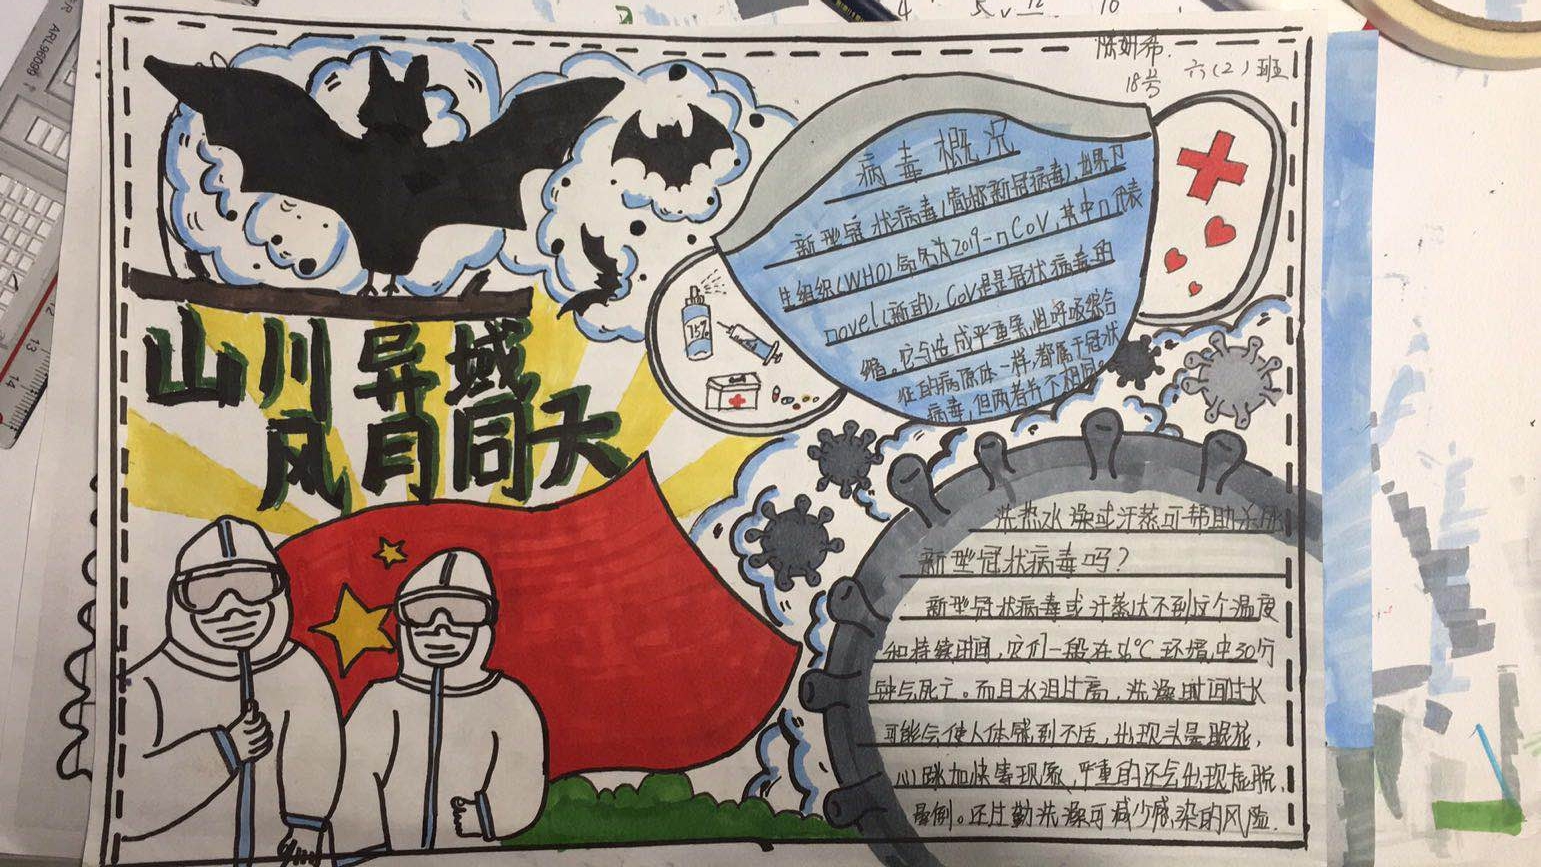 六(2)班
18号
山川异域
风月同天
病毒概况
新型冠状病毒(简称新冠病毒),世界卫
生组织(WHO)命名为2019-nCoV,其中n代表
novel(新的),CoV是冠状病毒的
缩。它与造成严重急性呼吸综合
征的病原体一样,都属于冠状
病毒,但两者并不相同。
75%
洗热水澡或汗蒸可帮助杀
新型冠状病毒吗?
新型冠状病毒或汗蒸达不到这个温度
和持续时间,它们一般在56℃环境中30分
钟与死亡。而且水温过高,洗澡时间过长
可能会使人体感到不适,出现头晕眼花,
心跳加快等现象,严重的还会出现虚脱,
晕倒。还过勤洗澡可减少感染的风险.
ARL96099
13
14